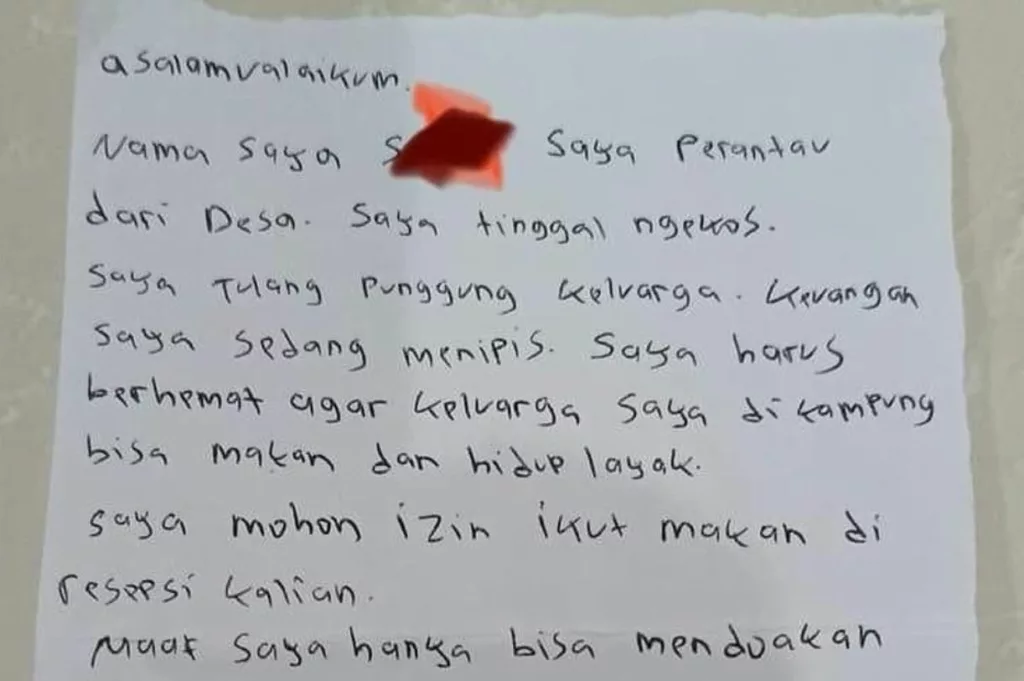 asalamualaikum.
Nama saya S saya Perantau
dari Desa. Saya tinggal ngekos.
Saya Tulang Punggung keluarga. keuangan
saya sedang menipis. Saya harus
berhemat agar keluarga saya di kampung
bisa makan dan hidup layak.
saya mohon izin ikut makan di
resepsi kalian.
Maaf saya hanya bisa menduakan